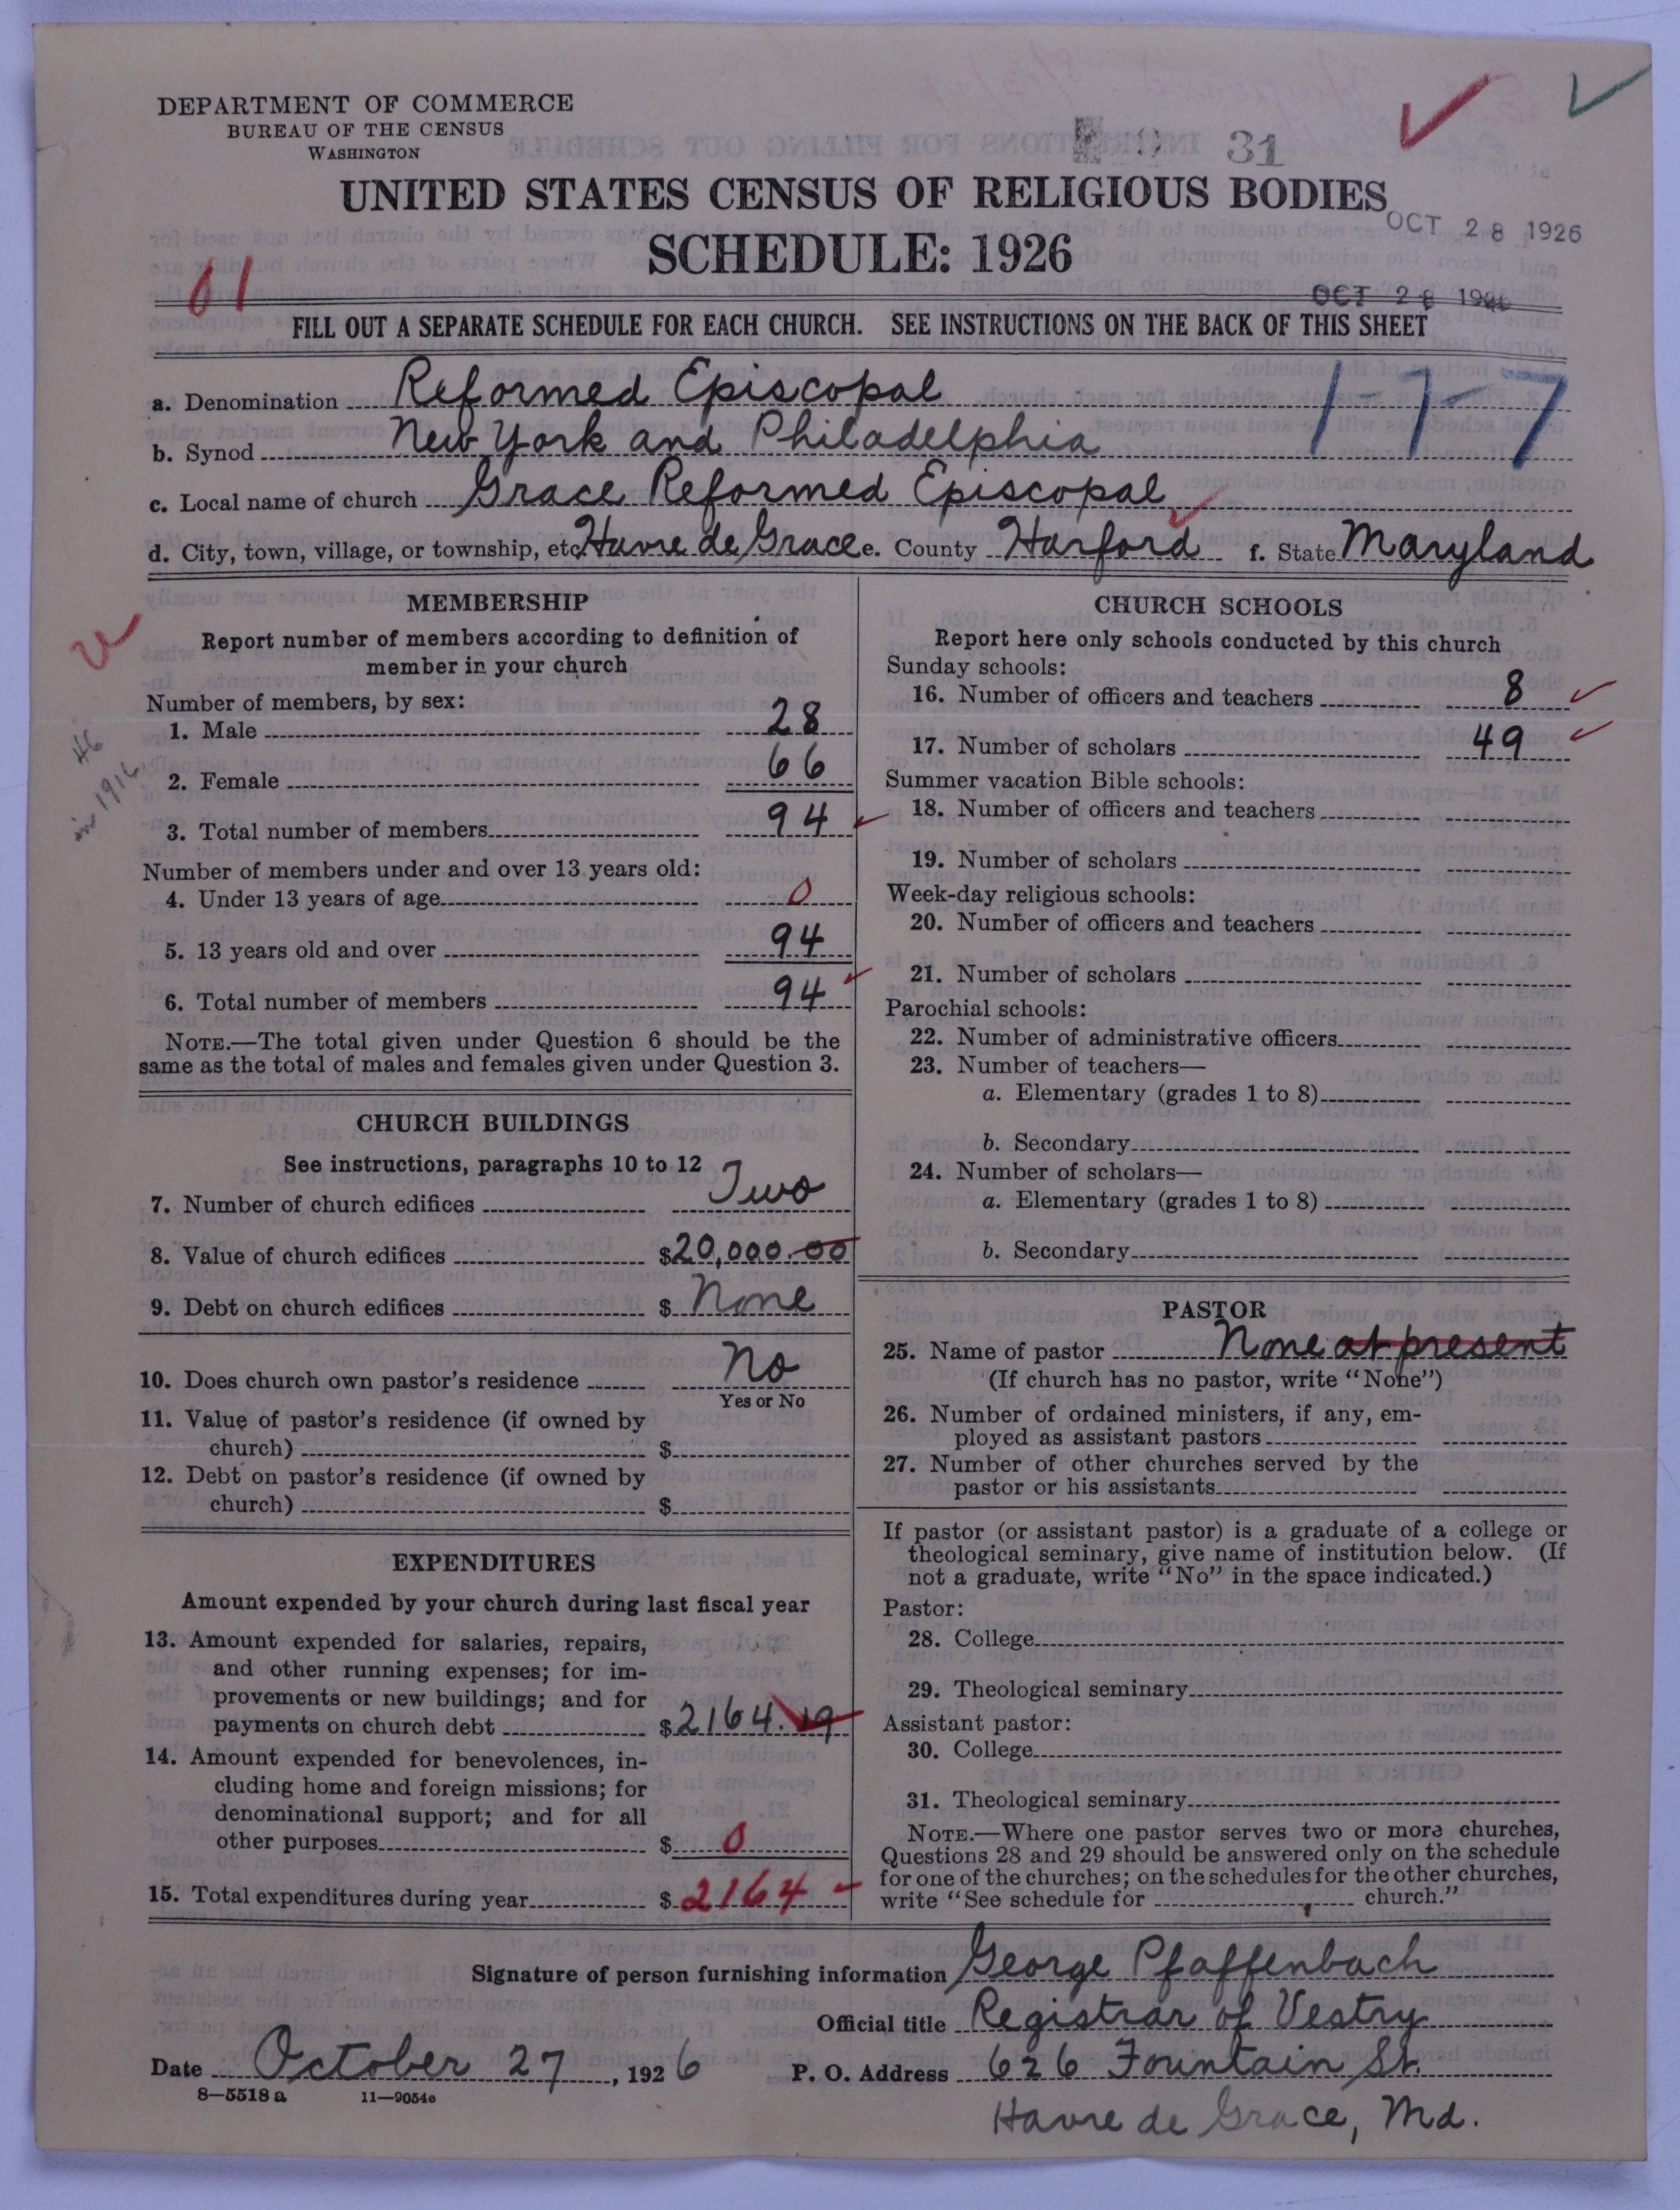 DEPARTMENT OF COMMERCE
BUREAU OF THE CENSUS
WASHINGTON
31
UNITED STATES CENSUS OF RELIGIOUS BODIES
OCT 28 1926
SCHEDULE: 1926
61
OCT 28 1926
FILL OUT A SEPARATE SCHEDULE FOR EACH CHURCH. SEE INSTRUCTIONS ON THE BACK OF THIS SHEET
a. Denomination Reformed Episcopal
1-7-7
b. Synod New York and Philadelphia
c. Local name of church Grace Reformed Episcopal
d. City, town, village, or township, etc. Havre de Grace e. County Harford f. State Maryland
MEMBERSHIP
Report number of members according to definition of
member in your church
Number of members, by sex:
1. Male 28
46
in 1916
2. Female 66
3. Total number of members 94
Number of members under and over 13 years old:
4. Under 13 years of age 0
5. 13 years old and over 94
6. Total number of members 94
NOTE.—The total given under Question 6 should be the
same as the total of males and females given under Question 3.
CHURCH BUILDINGS
See instructions, paragraphs 10 to 12
7. Number of church edifices Two
8. Value of church edifices $20,000.00
9. Debt on church edifices $ None
10. Does church own pastor's residence No
Yes or No
11. Value of pastor's residence (if owned by
church) $
12. Debt on pastor's residence (if owned by
church) $
EXPENDITURES
Amount expended by your church during last fiscal year
13. Amount expended for salaries, repairs,
and other running expenses; for im-
provements or new buildings; and for
payments on church debt $2164.19
14. Amount expended for benevolences, in-
cluding home and foreign missions; for
denominational support; and for all
other purposes $ 0
15. Total expenditures during year $ 2164
CHURCH SCHOOLS
Report here only schools conducted by this church
Sunday schools:
16. Number of officers and teachers 8
17. Number of scholars 49
Summer vacation Bible schools:
18. Number of officers and teachers
19. Number of scholars
Week-day religious schools:
20. Number of officers and teachers
21. Number of scholars
Parochial schools:
22. Number of administrative officers
23. Number of teachers—
a. Elementary (grades 1 to 8)
b. Secondary
24. Number of scholars—
a. Elementary (grades 1 to 8)
b. Secondary
PASTOR
25. Name of pastor None at present
(If church has no pastor, write "None")
26. Number of ordained ministers, if any, em-
ployed as assistant pastors
27. Number of other churches served by the
pastor or his assistants
If pastor (or assistant pastor) is a graduate of a college or
theological seminary, give name of institution below. (If
not a graduate, write "No" in the space indicated.)
Pastor:
28. College
29. Theological seminary
Assistant pastor:
30. College
31. Theological seminary
NOTE.—Where one pastor serves two or more churches,
Questions 28 and 29 should be answered only on the schedule
for one of the churches; on the schedules for the other churches,
write "See schedule for church."
Signature of person furnishing information George Pfaffenbach
Official title Registrar of Vestry
Date October 27, 1926 P. O. Address 626 Fountain St.
8-5518 a 11-9054e
Havre de Grace, Md.